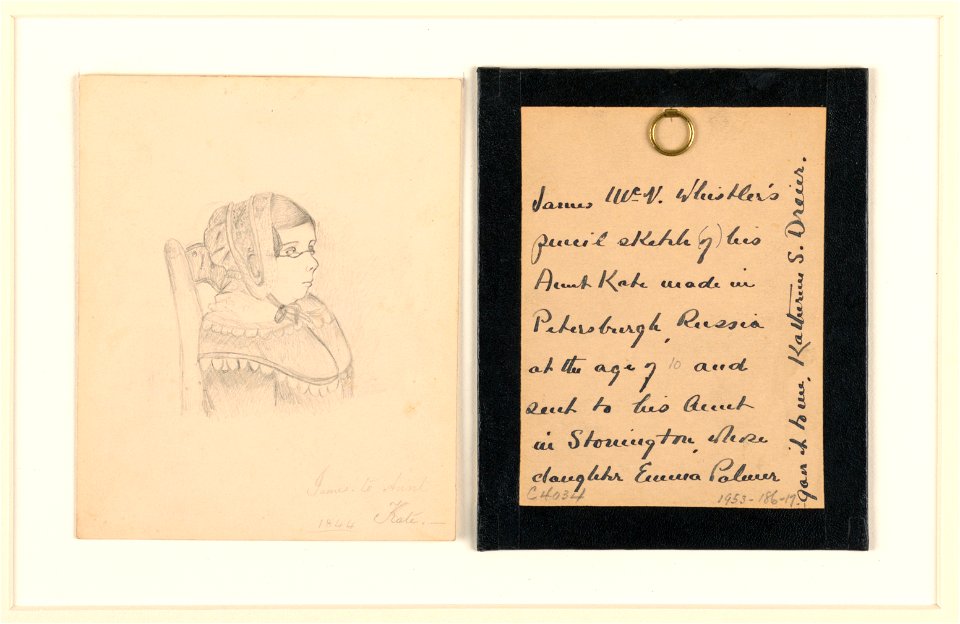 James to Aunt
1844 Kate.—
James McN. Whistler's
pencil sketch (of) his
Aunt Kate made in
Petersburgh, Russia
at the age of 10 and
sent to his Aunt
in Stonington, whose
daughter Emma Palmer
gave it to me, Katherine S. Dreier.
C4034
1953-186-17